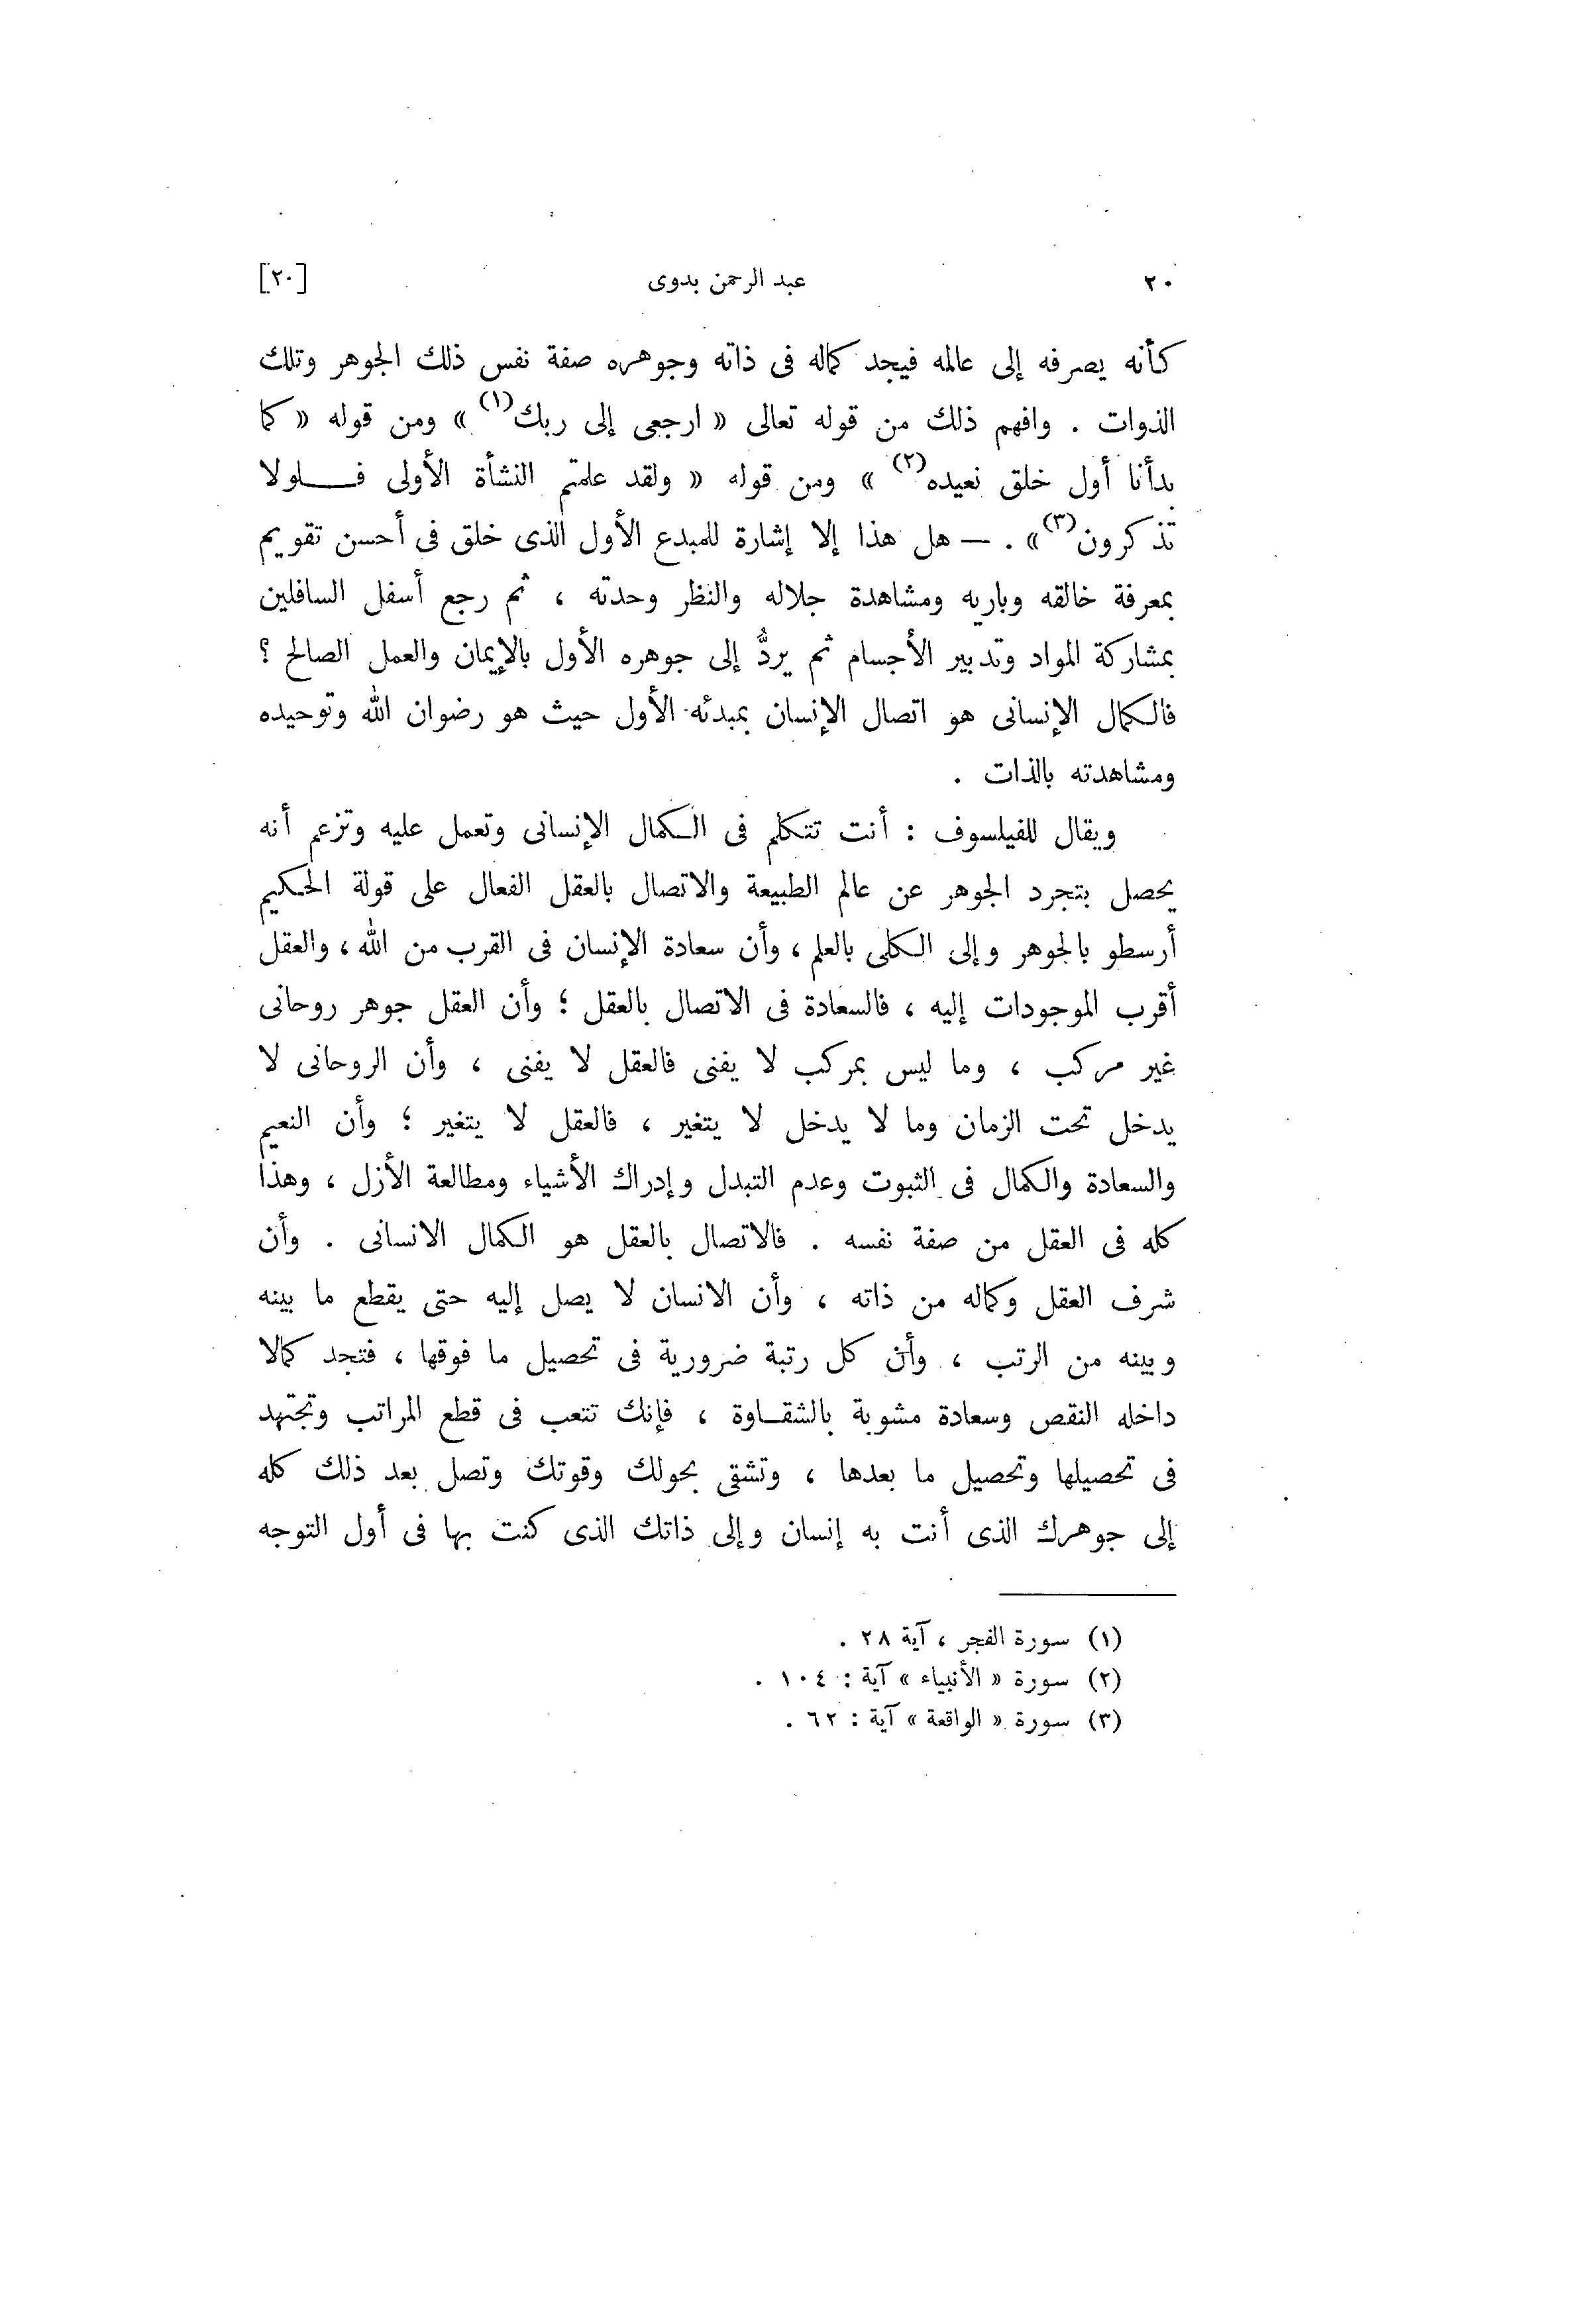 ٢٠ عبد الرحمن بدوى [٢٠]
كأنه يصرفه إلى عالمه فيجد كماله فى ذاته وجوهره صفة نفس ذلك الجوهر وتلك
الذوات . وافهم ذلك من قوله تعالى « ارجعى إلى ربك(١) » ومن قوله « كما
بدأنا أول خلق نعيده(٢) » ومن قوله « ولقد علمتم النشأة الأولى فـــلولا
تذكرون(٣)» . — هل هذا إلا إشارة للمبدع الأول الذى خلق فى أحسن تقويم
بمعرفة خالقه وباريه ومشاهدة جلاله والنظر وحدته ، ثم رجع أسفل السافلين
بمشاركة المواد وتدبير الأجسام ثم يردُّ إلى جوهره الأول بالإيمان والعمل الصالح ؟
فالكمال الإنسانى هو اتصال الإنسان بمبدئه الأول حيث هو رضوان الله وتوحيده
ومشاهدته بالذات .
ويقال للفيلسوف : أنت تتكلم فى الكمال الإنسانى وتعمل عليه وتزعم أنه
يحصل بتجرد الجوهر عن عالم الطبيعة والاتصال بالعقل الفعال على قولة الحكيم
أرسطو بالجوهر وإلى الكلى بالعلم ، وأن سعادة الإنسان فى القرب من الله ، والعقل
أقرب الموجودات إليه ، فالسعادة فى الاتصال بالعقل ؛ وأن العقل جوهر روحانى
غير مركب ، وما ليس بمركب لا يفنى فالعقل لا يفنى ، وأن الروحانى لا
يدخل تحت الزمان وما لا يدخل لا يتغير ، فالعقل لا يتغير ؛ وأن النعيم
والسعادة والكمال فى الثبوت وعدم التبدل وإدراك الأشياء ومطالعة الأزل ، وهذا
كله فى العقل من صفة نفسه . فالاتصال بالعقل هو الكمال الانسانى . وأن
شرف العقل وكماله من ذاته ، وأن الانسان لا يصل إليه حتى يقطع ما بينه
وبينه من الرتب ، وأن كل رتبة ضرورية فى تحصيل ما فوقها ، فتجد كمالا
داخله النقص وسعادة مشوبة بالشقــاوة ، فإنك تتعب فى قطع المراتب وتجتهد
فى تحصيلها وتحصيل ما بعدها ، وتشقى بحولك وقوتك وتصل بعد ذلك كله
إلى جوهرك الذى أنت به إنسان وإلى ذاتك الذى كنت بها فى أول التوجه
(١) سورة الفجر ، آية ٢٨ .
(٢) سورة « الأنبياء » آية : ١٠٤ .
(٣) سورة « الواقعة » آية : ٦٢ .